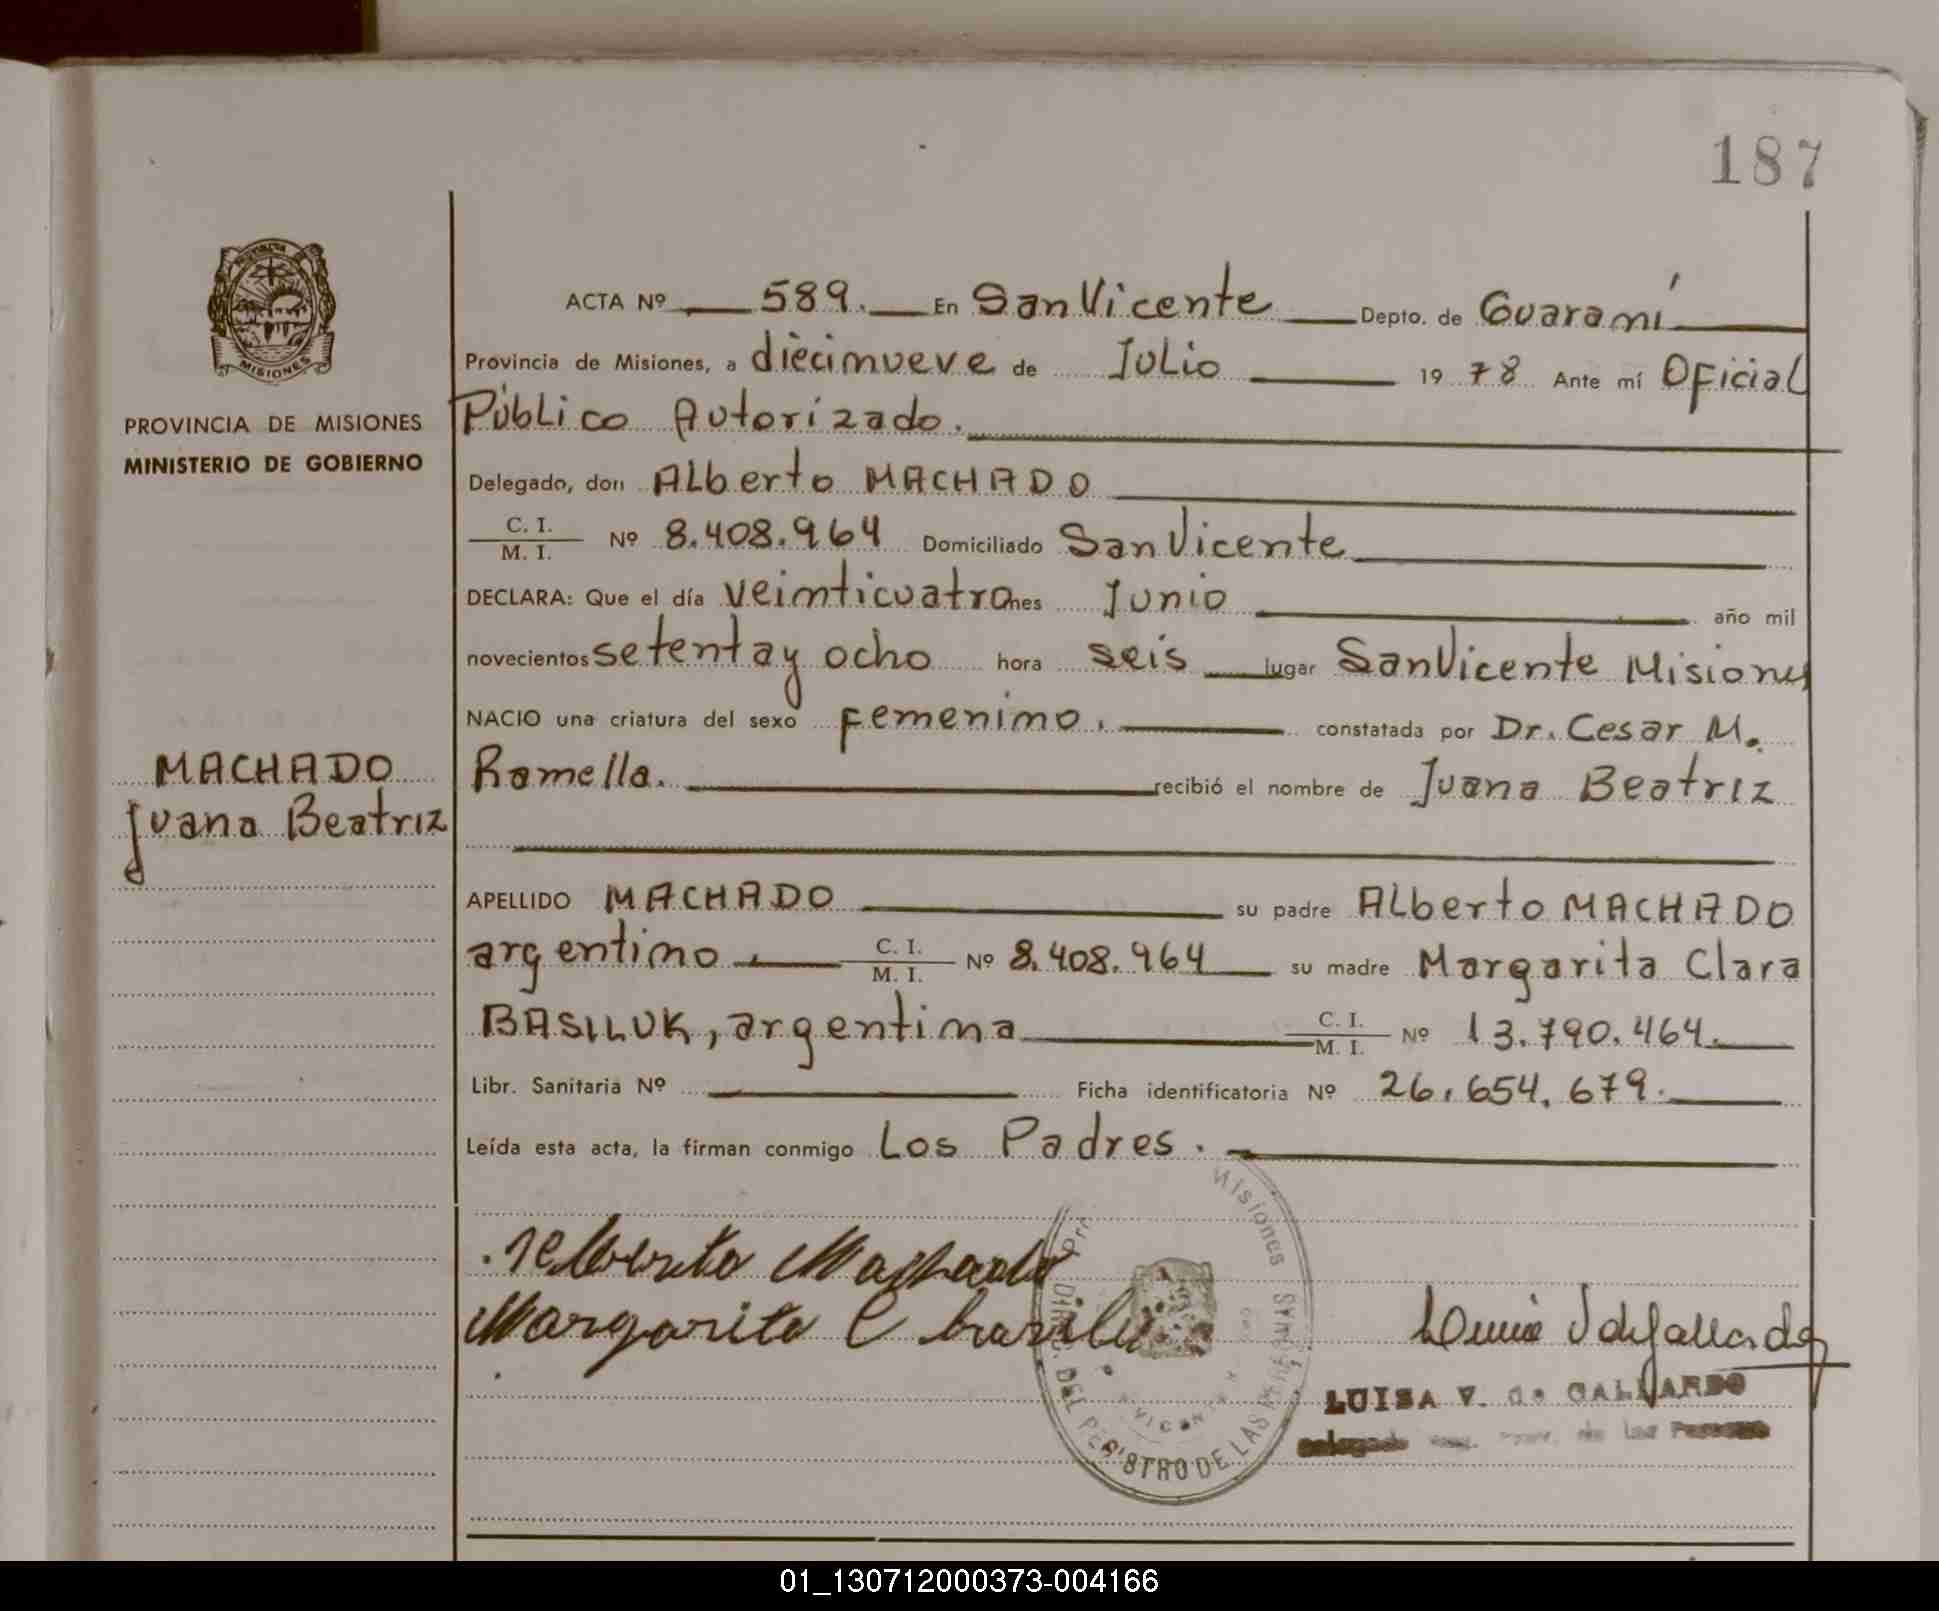 187
ACTA Nº 589. En San Vicente Depto. de Guaraní
Provincia de Misiones, a diecinueve de Julio 19 78 Ante mí Oficial
Público Autorizado.
PROVINCIA DE MISIONES
MINISTERIO DE GOBIERNO
Delegado, don Alberto MACHADO
C. I.
M. I. Nº 8.408.964 Domiciliado San Vicente
DECLARA: Que el día veinticuatro mes Junio año mil
novecientos setenta y ocho hora seis lugar San Vicente Misiones
NACIO una criatura del sexo femenino. constatada por Dr. Cesar M.
Ramella. recibió el nombre de Juana Beatriz
MACHADO
Juana Beatriz
APELLIDO MACHADO su padre Alberto MACHADO
argentino C. I. M. I. Nº 8.408.964 su madre Margarita Clara
BASILUK, argentina C. I. M. I. Nº 13.790.464.
Libr. Sanitaria Nº Ficha identificatoria Nº 26.654.679.
Leída esta acta, la firman conmigo Los Padres.
Alberto Machado
Margarita C
Misiones
LUISA V. de GALLARDO
de las
DEL REGISTRO DE LAS
MISIONES
01_130712000373-004166